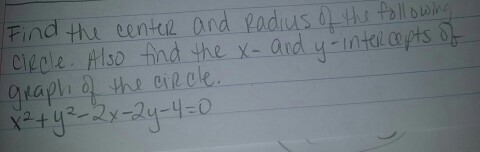 Find the center and Radius of the following
circle. Also find the x- and y-intercepts of
graph of the circle.
x²+y²-2x-2y-4=0